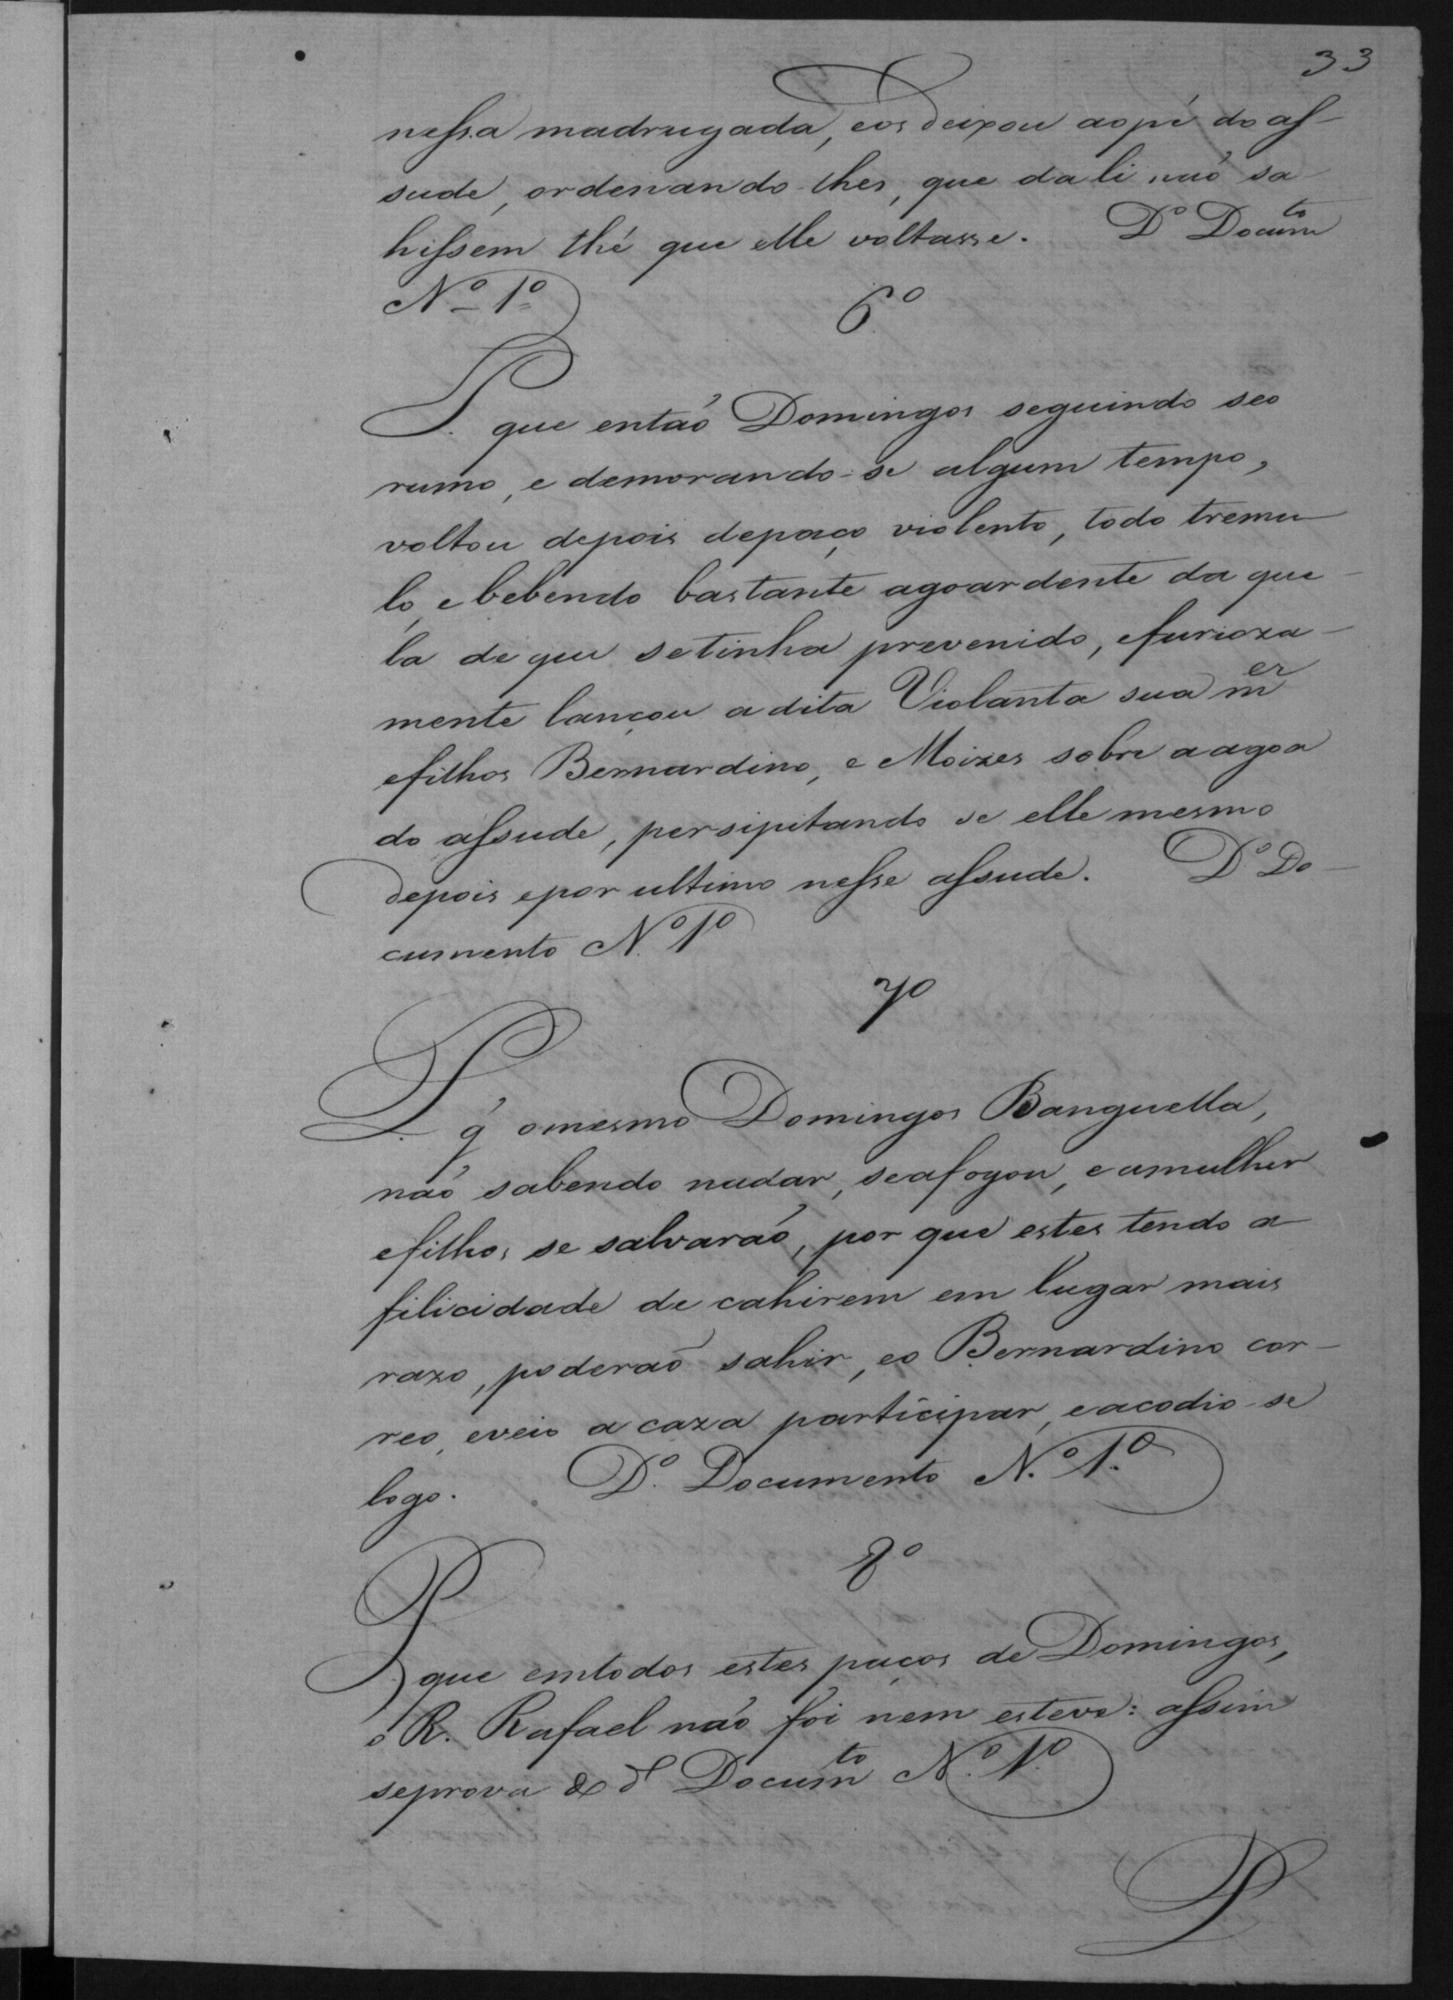 33
nessa madrugada, eos deixou aopé do as-
sude, ordenando-lhes, que dali naó sa-
hissem thé que elle voltasse. Dº Documto
Nº 1º
6º
P. que entaó Domingos seguindo seo
rumo, e demorando-se algum tempo,
voltou depois depaço violento, todo tremu-
lo, e bebendo bastante agoardente da que-
la de que setinha prevenido, efurioza-
mente lançou adita Violanta sua mer
efilhos Bernardino, e Moizes sobre aagoa
do assude, persipitando se elle mesmo
depois epor ultimo nesse assude. Dº Do-
cumento Nº 1º
7º
P. q̃ omesmo Domingos Banguella,
naó sabendo nadar, seafogou, eamulher
efilhos se salvaraó, por que estes tendo a
filicidade de cahirem em lugar mais
razo, poderaó sahir, eo Bernardino cor-
reo, eveio acaza participar, eacodio-se
logo. Dº. Documento N.º 1.º
8º
P. que emtodos estes paços de Domingos,
o R. Rafael naó foi nem esteve: assim
seprova do dº Documto N.º 1º
P